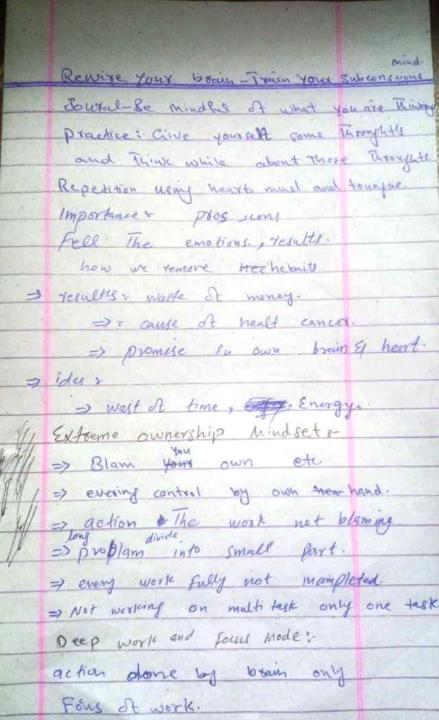 mind.
Rewire your brain - Train your Subconscious
Joural - Be mindful of what you are Thinking
practice:- Give yourself some Throught's
and Think while about Those Throughts
Repetition using heart mind and toungue.
Importance & pros, cons
Fell The emotions, results.
how we remove hebits
⇒ results: waste of money.
⇒ : cause of healt cancer.
⇒ promise in own brain & heart.
⇒ ides:
⇒ wast of time, Energy.
Extreme ownership Mindset:-
⇒ Blam You own etc
⇒ evering control by own hand.
⇒ action The work not blaming
⇒ long problam divide into small part.
⇒ every work fully not incompleted.
⇒ Not working on multi task only one task
Deep work and Focus Mode:-
action done by brain only
Foucs of work.